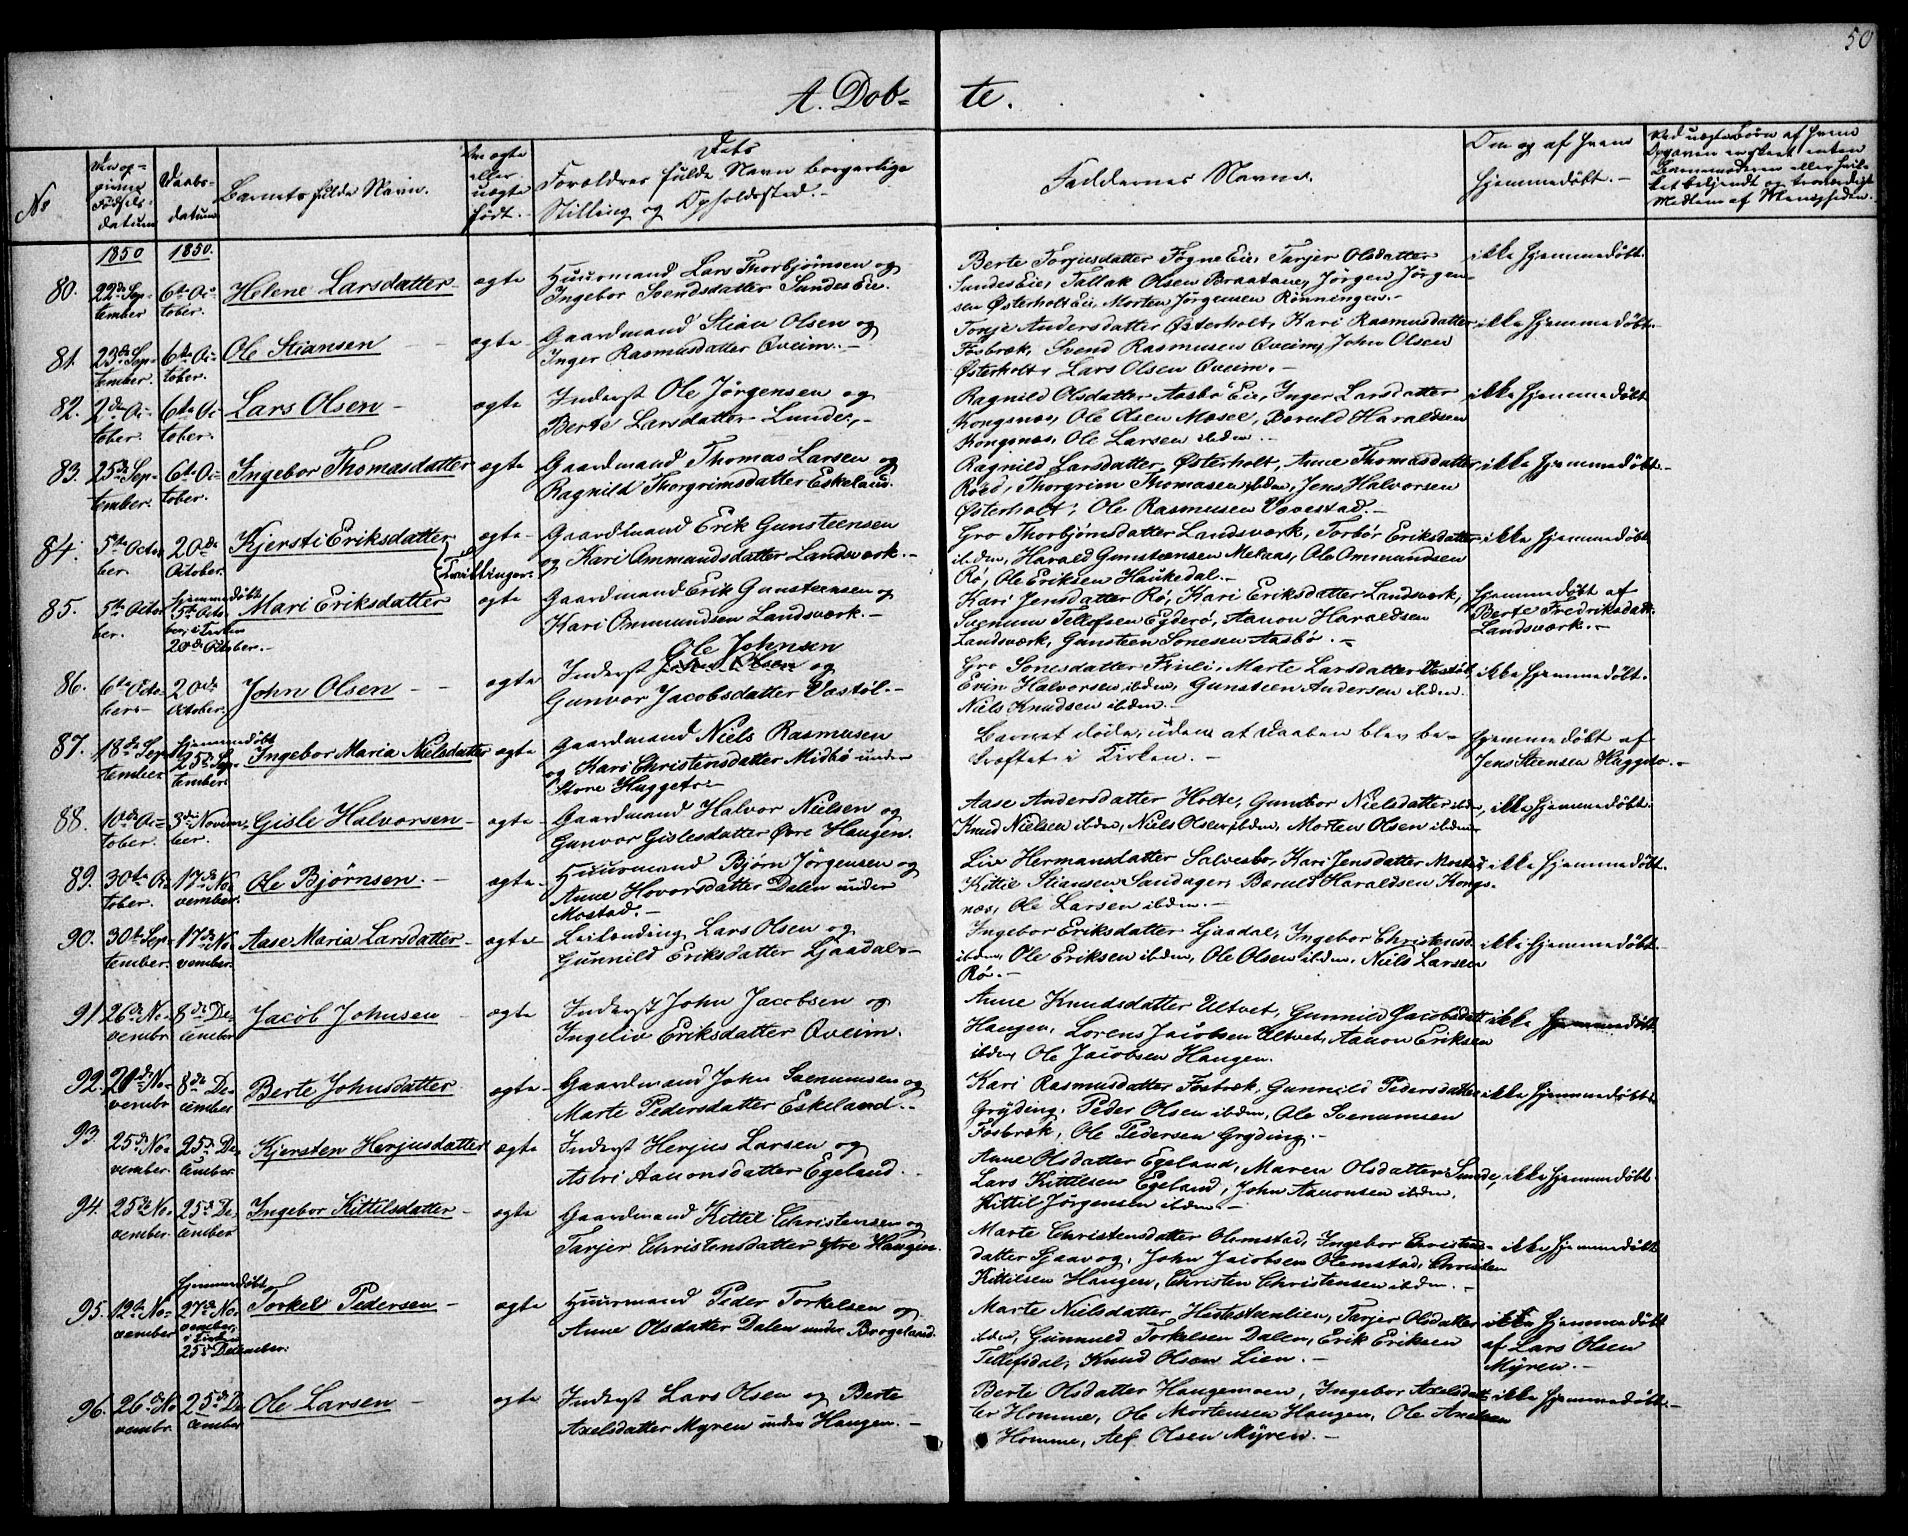 50
A. Døb-te.
No
Den op-
givne
Fødsels-
datum
Daabs-
datum
Barnets fulde Navn.
Om ægte
eller
uægte
født.
Dets
Forældres fulde Navn borgerlige
Stilling og Opholdssted.
Faddernes Navne.
Om og af hvem
hjemmedøbt.
Ved uægte Børn af hvem
Opgaven er skeet enten
Barnemoderen eller hvil-
ket bekjendt og troværdigt
Medlem af Menigheden.
1850 1850.
80. 22de Sep-
tember 6te Oc-
tober. Helene Larsdatter ægte Huusmand Lars Thorbjørnsen og
Ingebor Svendsdatter Sundes Eie.
Berte Torjusdatter Fogne Eie, Tarjer Olsdatter
Sundes Eie, Tallak Olsen Braatane, Jörgen Jörgen-
sen Østerholt Eie, Morten Jörgensen Rønningen.-
ikke hjemmedøbt.
81. 23de Sep-
tember. 6te Oc-
tober. Ole Stiansen ægte Gaardmand Stian Olsen og
Inger Rasmusdatter Qveim.-
Tonje Andersdatter Østerholt, Kari Rasmusdatter
Fosbræk, Svend Rasmusen Qveim, John Olsen
Østerholt, Lars Olsen Qveim.-
ikke hjemmedøbt.
82. 2den Oc-
tober. 6te Oc-
tober. Lars Olsen ægte Inderst Ole Jörgensen og
Berte Larsdatter Lunde,-
Ragnild Olsdatter Aasbö Eie, Inger Larsdatter
Kongsnæs, Ole Olsen Moseé, Boruld Haraldsen
Kongsnæs, Ole Larsen ibden.-
ikke hjemmedøbt
83. 25de Sep-
tember. 6te Oc-
tober. Ingebor Thomasdatter ægte Gaardmand Thomas Larsen og
Ragnild Thorgrimsdatter Eskeland.
Ragnild Larsdatter Østerholt, Anne Thomasdatter
Röed, Thorgrim Thomasen ibden, Jens Halvorsen
Østerholt, Ole Rasmusen Vævestad.-
ikke hjemmedøbt.-
84. 5te Octo-
ber. 20de
October. Kjersti Eriksdatter
Tvillinger. ægte Gaardmand Erik Gunsteensen
og Kari Ommundsdatter Landsværk.-
Gro Thorbjörnsdatter Landsværk, Torbör Eriksdatter
ibden, Harald Gunsteensen Melaas, Ole Ommundsen
Rö, Ole Eriksen Haukedal.-
ikke hjemmedøbt
85. 5te Octo-
ber. hjemmedøbt
5te Octo-
ber, i Kirken
20de October.- Mari Eriksdatter ægte Gaardmand Erik Gunsteensen og
Kari Ommundsen Landsværk.-
Kari Jensdatter Rö, Kari Eriksdatter Landsværk,
Svenum Tellefsen Eyderö, Aanon Haraldsen
Landsværk, Gunsteen Sonesen Aasbø.-
hjemmedøbt af
Berte Fredriksdatt.
Landsværk.-
86. 6te Octo-
ber.- 20de
October. John Olsen ægte Ole Johnsen
Inderst John Olsen og
Gunvor Jacobsdatter Vastöl.-
Gro Sonesdatter Friili, Marte Larsdatter Vastöl,
Evin Halvorsen ibden, Gunsteen Andersen ibden.
Niels Knudsen ibden.-
ikke hjemmedøbt.
87. 18de Sep-
tember. hjemmedøbt
25de Sep-
tember. Ingebor Maria Nielsdatter ægte Gaardmand Niels Rasmusen
og Kari Christensdatter Midbö under
Store Huggeto.-
Barnet døde, uden at Daaben blev be-
kræftet i Kirken.-
hjemmedøbt af
Jens Steensen Huggeto.-
88. 10de Oc-
tober. 3de Novem-
ber. Gisle Halvorsen ægte Gaardmand Halvor Nielsen og
Gunvor Gislesdatter Övre Haugen.
Aase Andersdatter Holte, Gunvor Nielsdatter ibden,
Knud Nielsen ibden, Niels Olsen ibden, Morten Olsen ibden
ikke hjemmedøbt.
89. 30te Oc-
tober. 17de No-
vember. Ole Bjørnsen.- ægte Huusmand Bjørn Jörgensen og
Anne Hovorsdatter Dalen under
Mostad.-
Liv Hermansdatter Salvesbo, Kari Jensdatter Mostad
Kittil Stiansen Sandager, Boruld Haraldsen Kongs-
næs, Ole Larsen ibden.-
ikke hjemmedøbt.
90. 30te Sep-
tember. 17de No-
vember. Aase Maria Larsdatter ægte Leilænding Lars Olsen og
Gunnild Eriksdatter Ljaadal.-
Ingebor Eriksdatter Ljaadal, Ingebor Christensd.
ibden, Ole Eriksen ibden, Ole Olsen ibden, Niels Larsen
Rö.-
ikke hjemmedøbt
91. 26de No-
vembr. 8de De-
cember Jacob Johnsen ægte Inderst John Jacobsen og
Ingeliv Eriksdatter Qveim.
Anne Knudsdatter Ultvet, Gunnild Jacobsdatt.
Haugen, Lorens Jacobsen Ultvet, Aanon Eriksen
ibden, Ole Jacobsen Haugen.
ikke hjemmedøbt.
92. 20de No-
vembr 8de De-
cember Berte Johnsdatter ægte Gaardmand John Svenumsen og
Marte Pedersdatter Eskeland.-
Kari Rasmusdatter Fosbræk, Gunnild Pedersdatter
Gryding, Peder Olsen ibden, Ole Svenumsen
Fosbræk, Ole Pedersen Gryding.-
ikke hjemmedøbt.
93. 25de No-
vember. 25de De-
cember. Kjersten Herjusdatter ægte Inderst Herjus Larsen og
Astri Aanonsdatter Egeland.
Anne Olsdatter Egeland, Maren Olsdatter Sunde,
Lars Kittilsen Egeland, John Aanonsen ibden,
Kittil Jörgensen ibden.-
ikke hjemmedøbt.
94. 25de No-
vember. 25de De-
cember Ingebor Kittilsdatter ægte Gaardmand Kittil Christensen og
Tarjer Christensdatter ytre Haugen.
Marte Christensdatter Olimstad, Ingebor Christens-
datter Sjaavog, John Jacobsen Olimstad, Christen
Kittilsen Haugen, Christen Christensen ibden.-
ikke hjemmedøbt
95. 12te No-
vember hjemmedøbt
27de No-
vember,
i Kirken
25de December. Torkel Pedersen ægte Huusmand Peder Torkelsen og
Anne Olsdatter Dalen under Bergeland.
Marte Nielsdatter, Tarjer Olsdatter
ibden, Gunnuld Torkelsen Dalen, Erik Eriksen
Tellefsdal, Knud Olsen Lien.-
ikke hjemmedøbt
af Lars Olsen
Myren.-
96. 26de No-
vembr. 25de De-
cember Ole Larsen ægte Inderst Lars Olsen og Berte
Axelsdatter Myren under Haugen.-
Berte Olsdatter Haugemoen, Ingebor Axelsdat-
ter Homme, Ole Mortensen Haugen, Ole Axelsen
Homme, Aef Olsen Myren.-
ikke hjemmedøbt.-